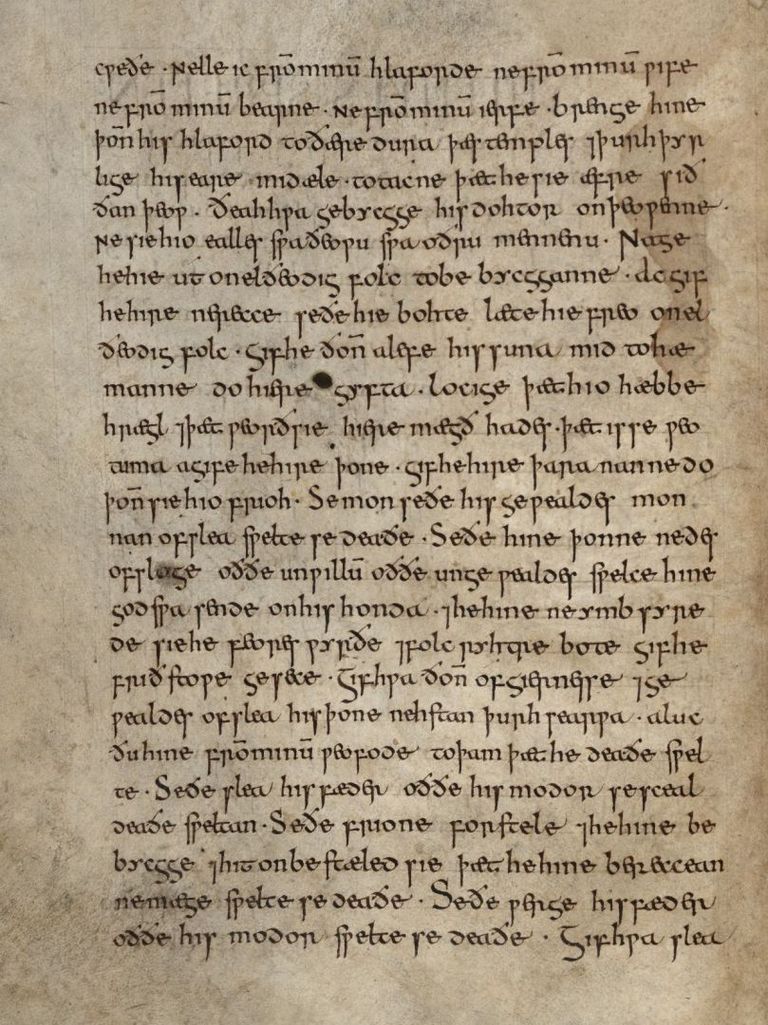 cƿeðe · Nelle ic frō minū hlaforde ne frō minū ƿife
ne frō minū bearne · ne frō minū ierfe · brenge hine
þoñ his hlaford to ðære dura þæs temples ⁊þurhþyr
lige his eare mid æle · to tacne þæt he sie æfre sið
ðan þeoƿ · Ðeah hƿa gebycgge his dohtor on þeoƿenne ·
Ne sie hio ealles sƿa ðeoƿu sƿa oðru mennenu · Nage
he hie ut on elðeodig folc to bebycgganne · Ac gif
he hire ne recce se ðe hie bohte læte hie freo on el
ðeodig folc · Gif he ðoñ alefe his suna mid to hæ
manne do hiere gyfta · locige þæt hio hæbbe
hrægl ⁊þæt ƿeorð sie hiere mægðhades · þæt is se ƿeo
tuma agife he hire þone · gif he hire þara nan ne do
þoñ sie hio frioh · Se mon se ðe his geƿealdes mon
nan ofslea sƿelte se deaðe · Se ðe hine þonne nedes
ofsloge oððe unƿillū oððe ungeƿealdes sƿelce hine
god sƿa sende on his honda · ⁊he hine ne ymbsyre
de sie he feores ƿyrðe ⁊folcryhtre bote gif he
friðstoƿe gesece · Gif hƿa ðoñ of giernesse ⁊ge
ƿealdes ofslea his þone nehstan þurh searƿa · aluc
ðu hine frō minū ƿeofode to þam þæt he deaðe sƿel
te · Se ðe slea his fæder oððe his modor se sceal
deaðe sƿeltan · Se ðe frione forstele ⁊he hine be
bycgge ⁊hit onbestæled sie þæt he hine bereccean
ne mæge sƿelte se deaðe · Se ðe ƿerge his fæder
oððe his modor sƿelte se deaðe · Gif hƿa slea